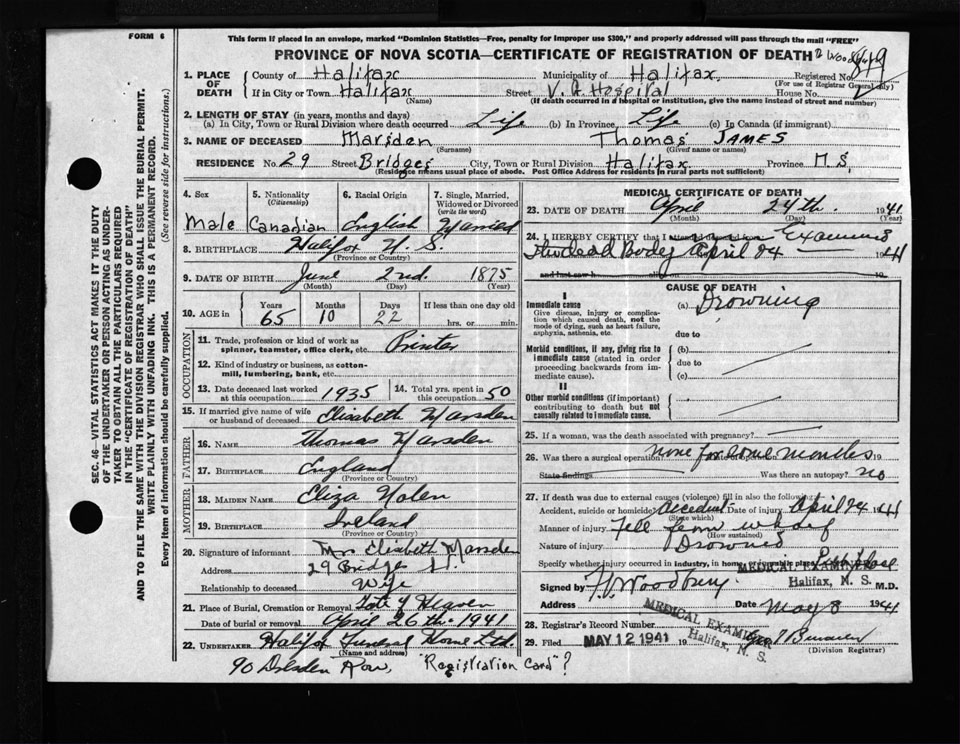 FORM 6
This form if placed in an envelope, marked "Dominion Statistics—Free, penalty for improper use $300," and properly addressed will pass through the mail "FREE"
PROVINCE OF NOVA SCOTIA—CERTIFICATE OF REGISTRATION OF DEATH
849
SEC. 46—VITAL STATISTICS ACT MAKES IT THE DUTY
OF THE UNDERTAKER OR PERSON ACTING AS UNDER-
TAKER TO OBTAIN ALL THE PARTICULARS REQUIRED
IN THE "CERTIFICATE OF REGISTRATION OF DEATH"
AND TO FILE THE SAME WITH THE DIVISION REGISTRAR WHO SHALL ISSUE THE BURIAL PERMIT.
WRITE PLAINLY WITH UNFADING INK. THIS IS A PERMANENT RECORD.
Every item of Information should be carefully supplied. (See reverse side for instructions.)
1. PLACE OF DEATH
County of Halifax Municipality of Halifax Registered No.
(For use of Registrar General only)
If in City or Town Halifax Street V. G. Hospital House No.
(Name) (If death occurred in a hospital or institution, give the name instead of street and number)
2. LENGTH OF STAY (in years, months and days)
(a) In City, Town or Rural Division where death occurred Life (b) In Province Life (c) In Canada (if immigrant)
3. NAME OF DECEASED Marsden Thomas JAMES
(Surname) (Given name or names)
RESIDENCE No. 29 Street Bridges City, Town or Rural Division Halifax Province N. S.
(Residence means usual place of abode. Post Office Address for residents in rural parts not sufficient)
4. Sex 5. Nationality (Citizenship) 6. Racial Origin 7. Single, Married, Widowed or Divorced (write the word)
Male Canadian English Married
8. BIRTHPLACE Halifax N. S.
(Province or Country)
9. DATE OF BIRTH June 2nd. 1875
(Month) (Day) (Year)
10. AGE in Years Months Days If less than one day old
65 10 22 hrs. or min.
OCCUPATION
11. Trade, profession or kind of work as spinner, teamster, office clerk, etc. Printer
12. Kind of industry or business, as cotton-mill, lumbering, bank, etc.
13. Date deceased last worked at this occupation 1935 14. Total yrs. spent in this occupation 50
15. If married give name of wife or husband of deceased Elizabeth Marsden
FATHER
16. NAME Thomas Marsden
17. BIRTHPLACE England
(Province or Country)
MOTHER
18. MAIDEN NAME Eliza Nolen
19. BIRTHPLACE Ireland
(Province or Country)
20. Signature of informant Mrs Elizabeth Marsden
Address 29 Bridges St.
Relationship to deceased Wife
21. Place of Burial, Cremation or Removal Gate of Heaven
Date of burial or removal April 26th. 1941
22. UNDERTAKER Halifax Funeral Home Ltd.
(Name and address)
90 Row, "Registration Card"?
MEDICAL CERTIFICATE OF DEATH
23. DATE OF DEATH April 24th. 1941
(Month) (Day) (Year)
24. I HEREBY CERTIFY that I Examined
The dead Body April 24 1941
CAUSE OF DEATH
I
Immediate cause
Give disease, injury or complication which caused death, not the mode of dying, such as heart failure, asphyxia, asthenia, etc.
(a) Drowning
due to
Morbid conditions, if any, giving rise to immediate cause (stated in order proceeding backwards from immediate cause).
(b)
due to
(c)
II
Other morbid conditions (if important) contributing to death but not causally related to immediate cause.
25. If a woman, was the death associated with pregnancy?
26. Was there a surgical operation none for some months 19
State findings Was there an autopsy? no
27. If death was due to external causes (violence) fill in also the following:
Accident, suicide or homicide? Accident Date of injury April 24 1941
(State which)
Manner of injury Fell from wharf
(How sustained)
Nature of injury Drowned
Specify whether injury occurred in industry, in home, or in public place
Signed by F. Woodbury M.D.
MEDICAL EXAMINER
Halifax, N. S.
Address Date May 8 1941
MEDICAL EXAMINER
Halifax, N. S.
28. Registrar's Record Number
29. Filed MAY 12 1941 19
(Division Registrar)